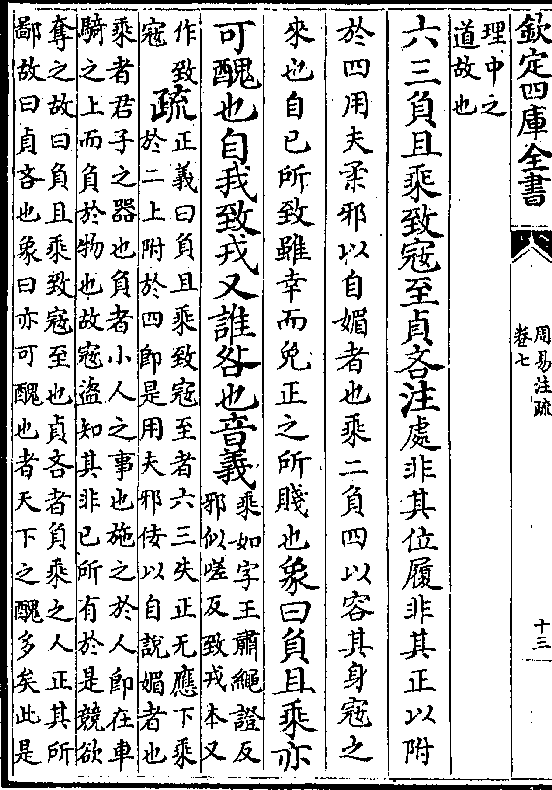 欽定四庫全書
周易注疏
卷七
十三
理中之
道故也
六三負且乘致寇至貞吝注處非其位履非其正以附
於四用夫柔邪以自媚者也乘二負四以容其身寇之
來也自已所致雖幸而免正之所賤也象曰負且乘亦
可醜也自我致戎又誰咎也音義
乘如字王肅繩證反
邪似嗟反致戎本又
作致
寇
疏
正義曰負且乘致寇至者六三失正无應下乘
於二上附於四即是用夫邪佞以自說媚者也
乘者君子之器也負者小人之事也施之於人即在車
騎之上而負於物也故寇盜知其非已所有於是競欲
奪之故曰負且乘致寇至也貞吝者負乘之人正其所
鄙故曰貞吝也象曰亦可醜也者天下之醜多矣此是